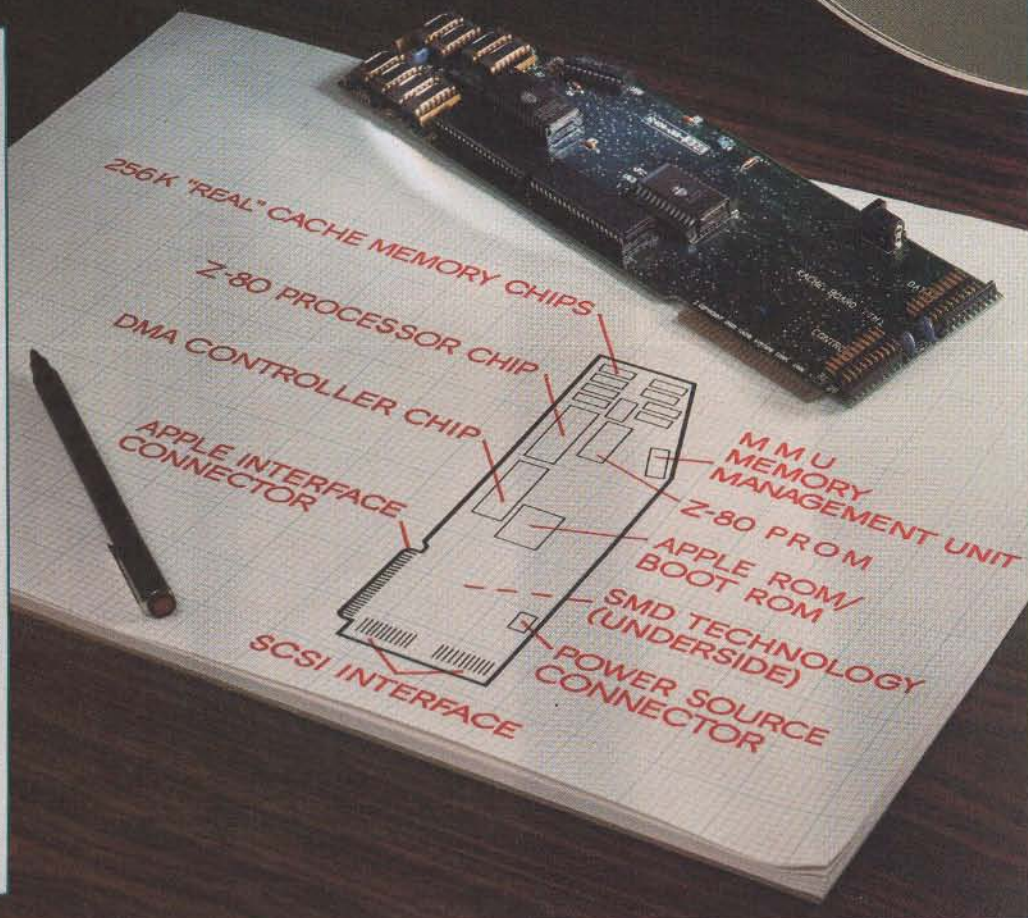 256K "REAL" CACHE MEMORY CHIPS
Z-80 PROCESSOR CHIP
DMA CONTROLLER CHIP
APPLE INTERFACE
CONNECTOR
SCSI INTERFACE
MMU
MEMORY
MANAGEMENT UNIT
Z-80 PROM
APPLE ROM/
BOOT ROM
SMD TECHNOLOGY
(UNDERSIDE)
POWER SOURCE
CONNECTOR